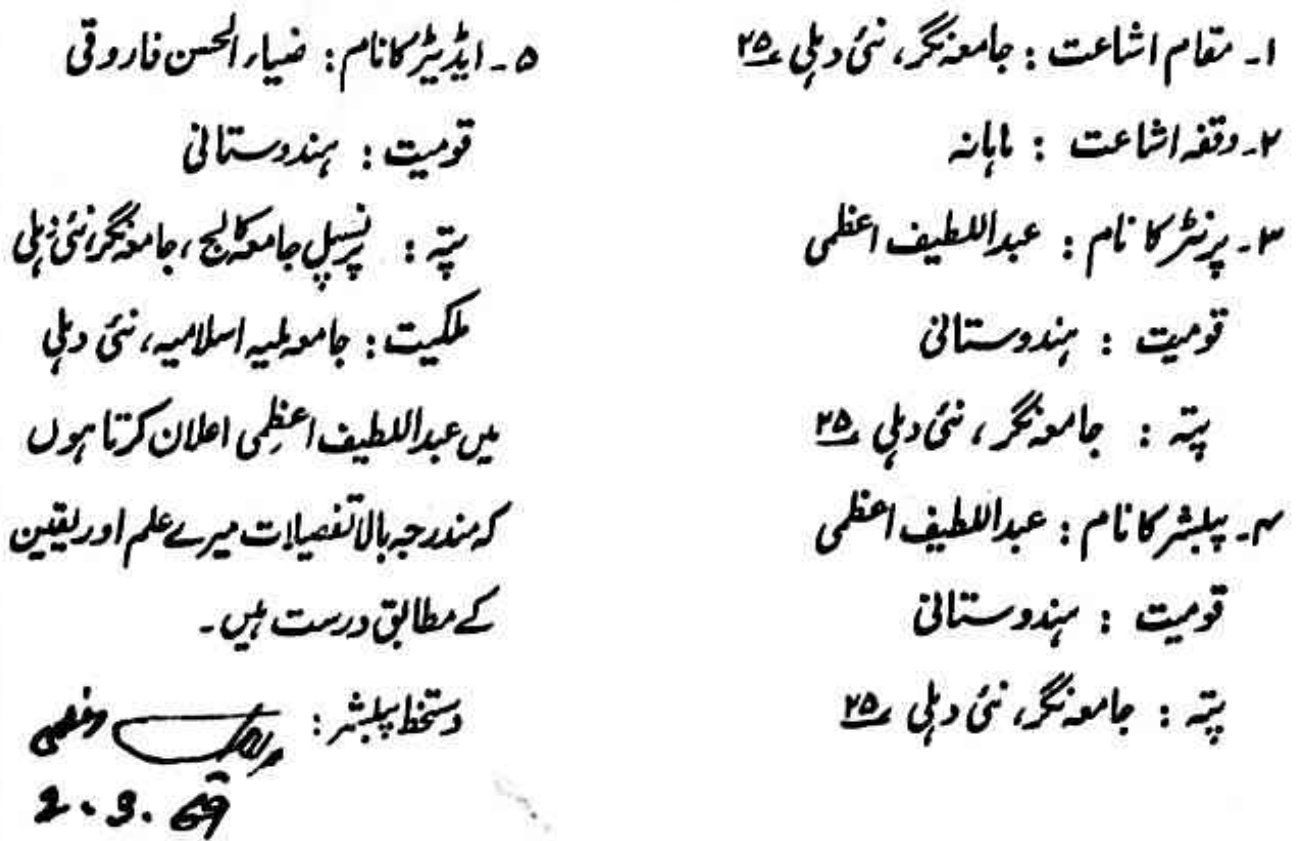 ۱۔ مقام اشاعت : جامعہ نگر، نئی دہلی ۲۵
۲۔ وقفہ اشاعت : ماہانہ
۳۔ پرنٹر کا نام : عبداللطیف اعظمی
قومیت : ہندوستانی
پتہ : جامعہ نگر، نئی دہلی ۲۵
۴۔ پبلشر کا نام : عبداللطیف اعظمی
قومیت : ہندوستانی
پتہ : جامعہ نگر، نئی دہلی ۲۵
۵۔ ایڈیٹر کا نام : ضیاء الحسن فاروقی
قومیت : ہندوستانی
پتہ : پرنسپل جامعہ کالج، جامعہ نگر، نئی دہلی
ملکیت : جامعہ ملیہ اسلامیہ، نئی دہلی
میں عبداللطیف اعظمی اعلان کرتا ہوں
کہ مندرجہ بالا تفصیلات میرے علم اور یقین
کے مطابق درست ہیں۔
دستخط پبلشر :
2.3.69